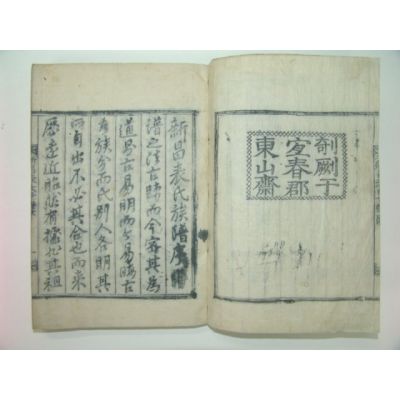 剞劂于
宜春郡
東山齋
新昌表氏族譜序
譜之法古 而今 其爲
道 古易明而今易晦古
者族分而氏別人各明其
所自出不必其合也而來
歷遠近昭然有據也其祖